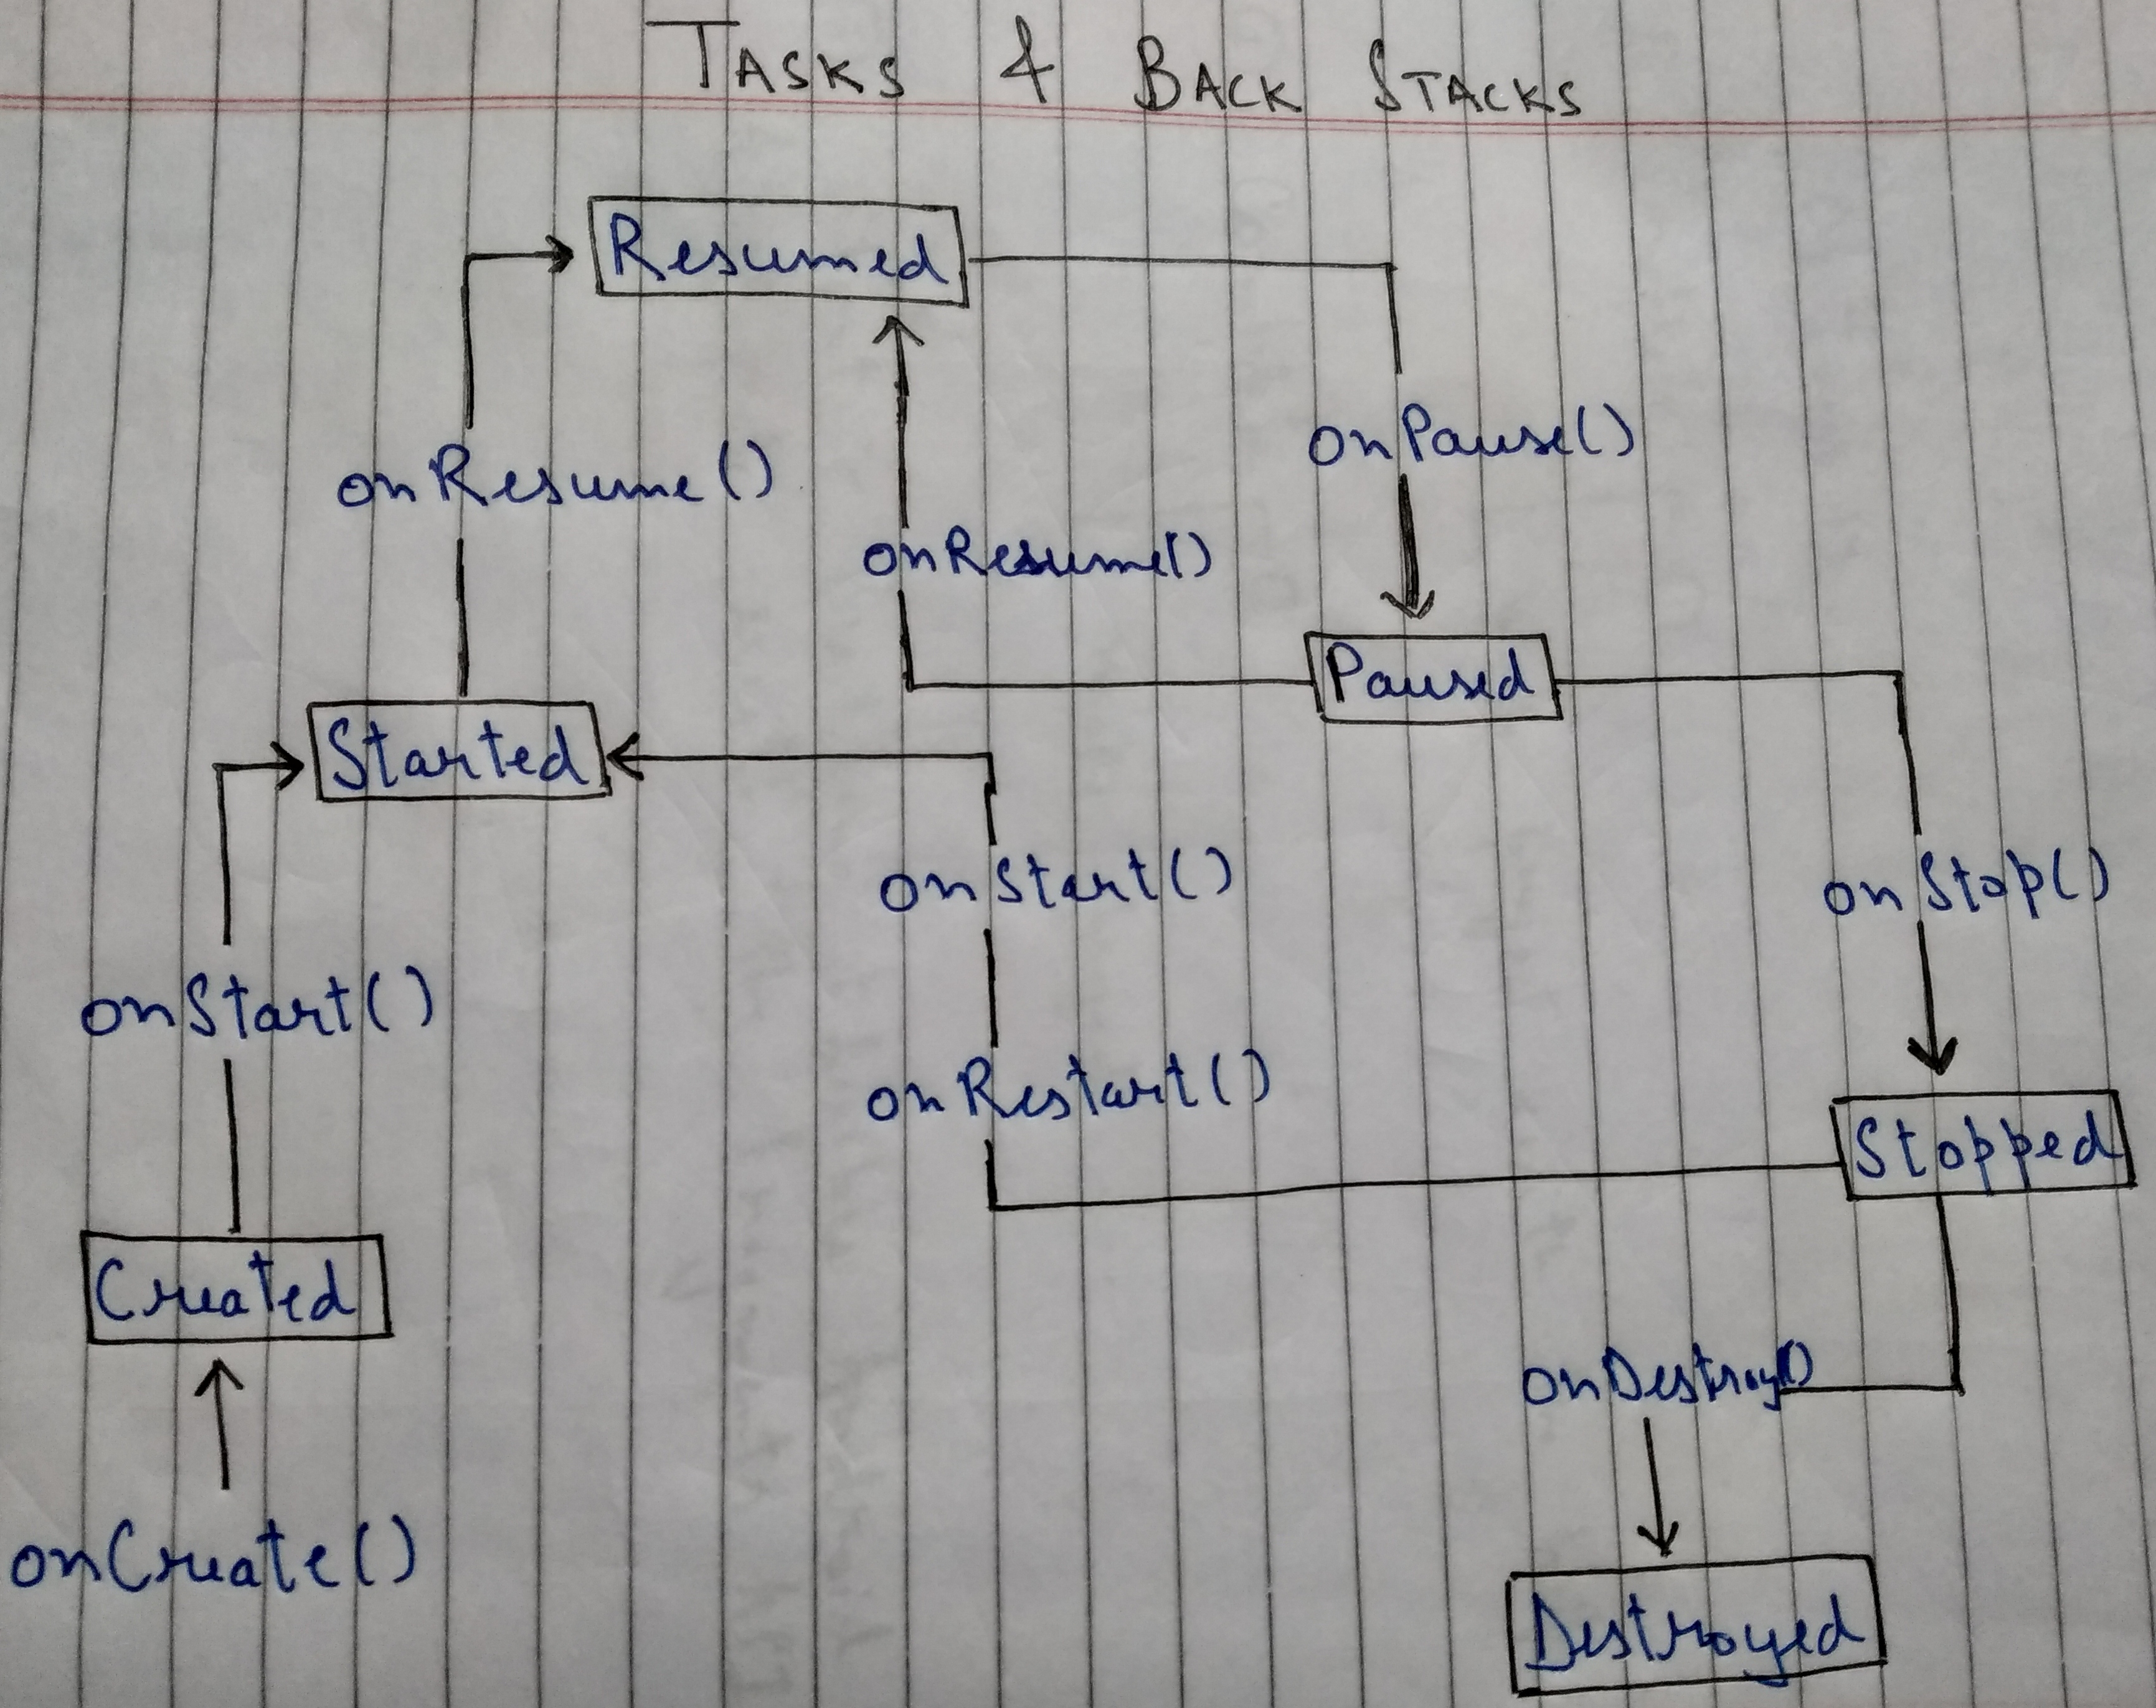 TASKS & BACK STACKS
Resumed
onPause()
onResume()
onResume()
Paused
Started
onStart()
onStop()
onStart()
onRestart()
Stopped
Created
onDestroy()
onCreate()
Destroyed